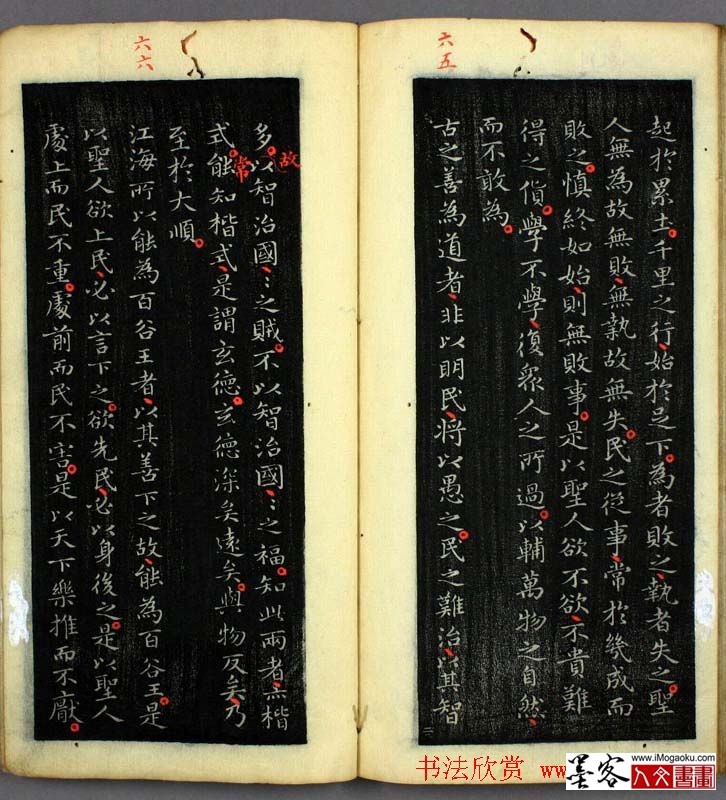 六五
起於累土千里之行始於足下為者敗之執者失之聖
人無為故無敗無執故無失民之從事常於幾成而
敗之慎終如始則無敗事是以聖人欲不欲不貴難
得之貨學不學復眾人之所過以輔萬物之自然
而不敢為
古之善為道者非以明民將以愚之民之難治以其智
六六
多故以智治國〻之賊不以智治國〻之福知此兩者亦楷
式能知楷式是謂玄德玄德深矣遠矣與物反矣乃
常
至於大順
江海所以能為百谷王者以其善下之故能為百谷王是
以聖人欲上民必以言下之欲先民必以身後之是以聖人
處上而民不重處前而民不害是以天下樂推而不厭
书法欣赏 www
墨客
www.iMogaoku.com
人文書畫